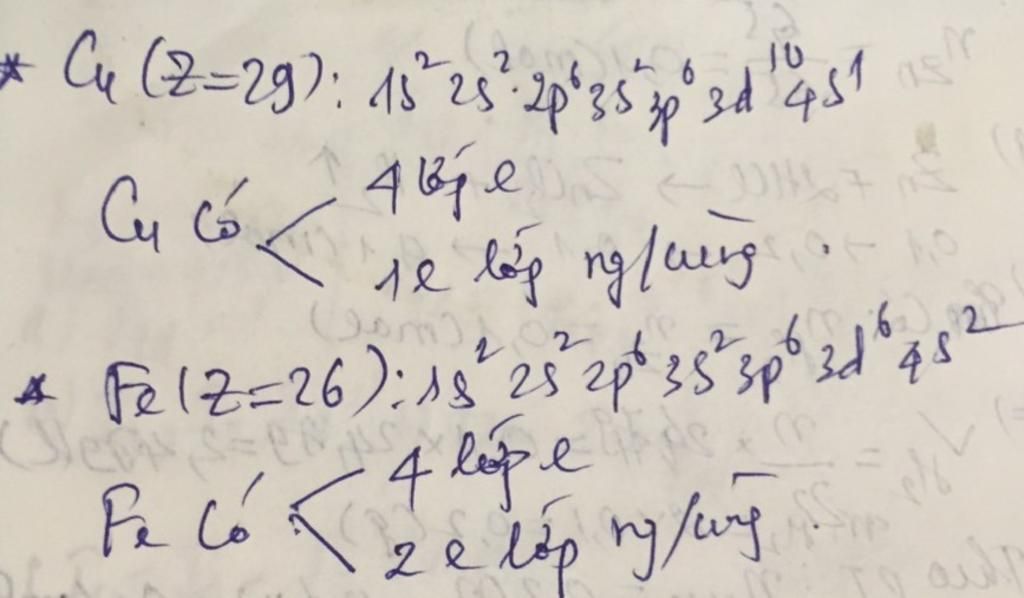 * Cu (Z=29): 1s² 2s² 2p⁶ 3s² 3p⁶ 3d¹⁰ 4s¹
Cu có < 4 lớp e
1e lớp ng/cùng.
* Fe (Z=26): 1s² 2s² 2p⁶ 3s² 3p⁶ 3d⁶ 4s²
Fe có < 4 lớp e
2e lớp ng/cùng.